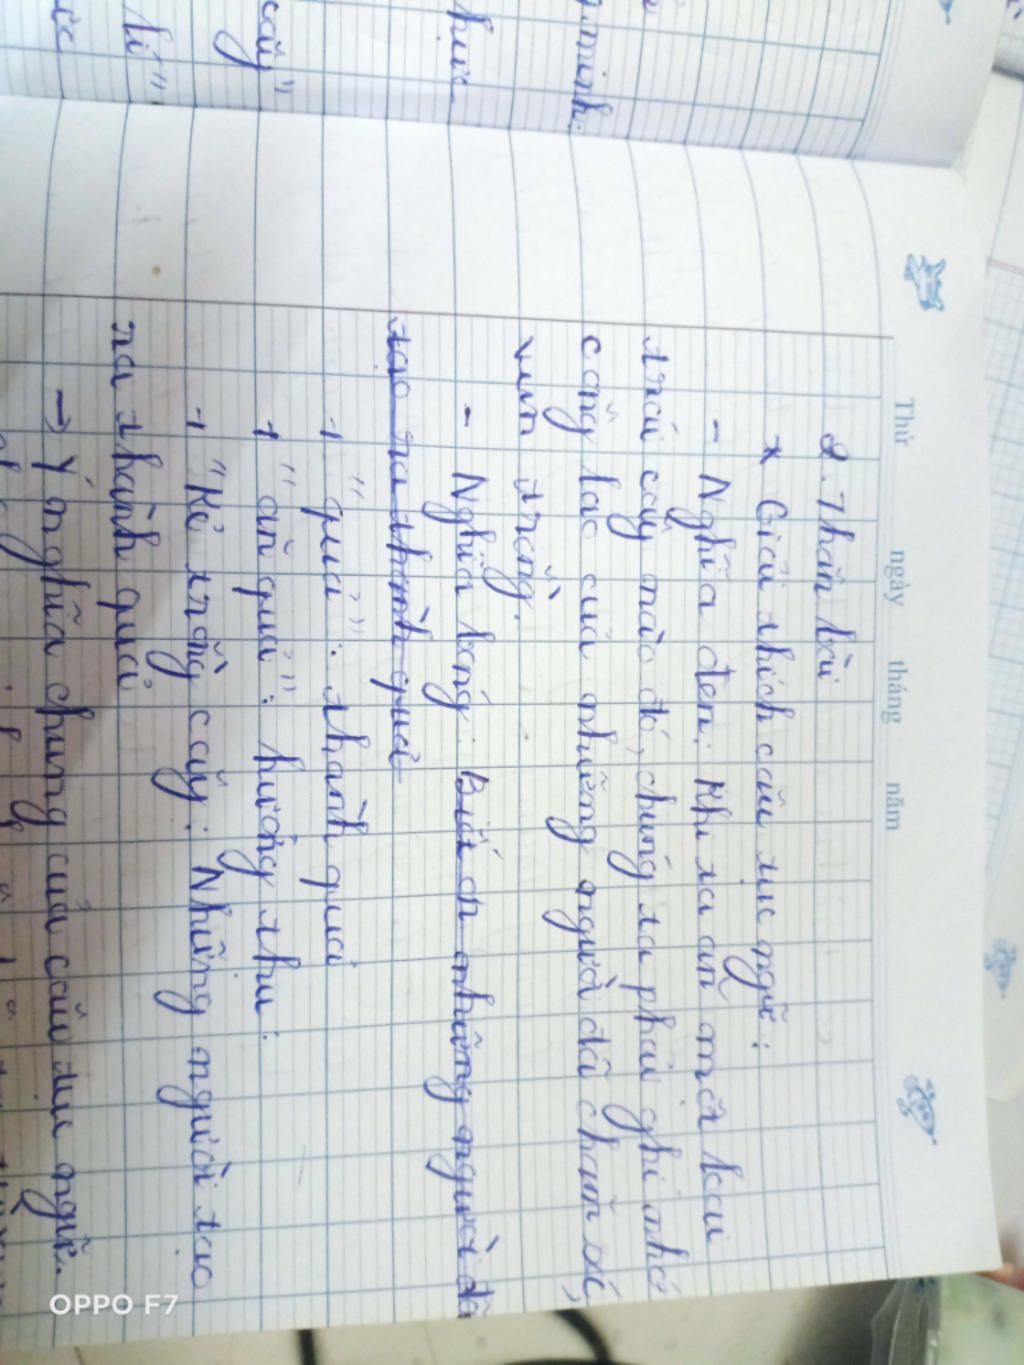 Thứ ngày tháng năm
2. Thân bài
* Giải thích câu tục ngữ:
- Nghĩa đen: Khi ta ăn một loại
trái cây nào đó, chúng ta phải ghi nhớ
công lao của những người đã chăm sóc,
vun trồng.
- Nghĩa bóng: Biết ơn những người đã
tạo ra thành quả
+ "quả": thành quả
+ "ăn quả": hưởng thụ:
+ "Kẻ trồng cây: Những người tạo
ra thành quả
→ Ý nghĩa chung của câu tục ngữ.
minh.
cây"
OPPO F7